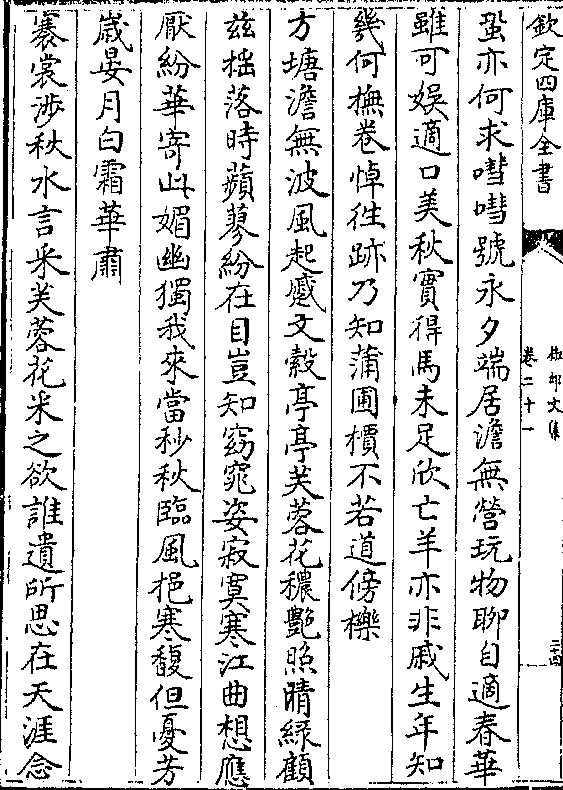 欽定四庫全書
卷二十一
蛩亦何求嘒嘒號永夕端居澹無營玩物聊自適春華
雖可娱適口美秋實得馬未足欣亡羊亦非戚生年知
幾何撫卷悼徃跡乃知蒲圃檟不若道傍櫟
方塘澹無波風起蹙文縠亭亭芙蓉花穠艶照晴緑顧
兹揺落時蘋蓼紛在目豈知窈窕姿寂寞寒江曲想應
厭紛華寄此媚幽獨我來當秒秋臨風挹寒馥但憂芳
嵗晏月白霜華肅
褰裳涉秋水言采芙蓉花米之欲誰遺所思在天涯念